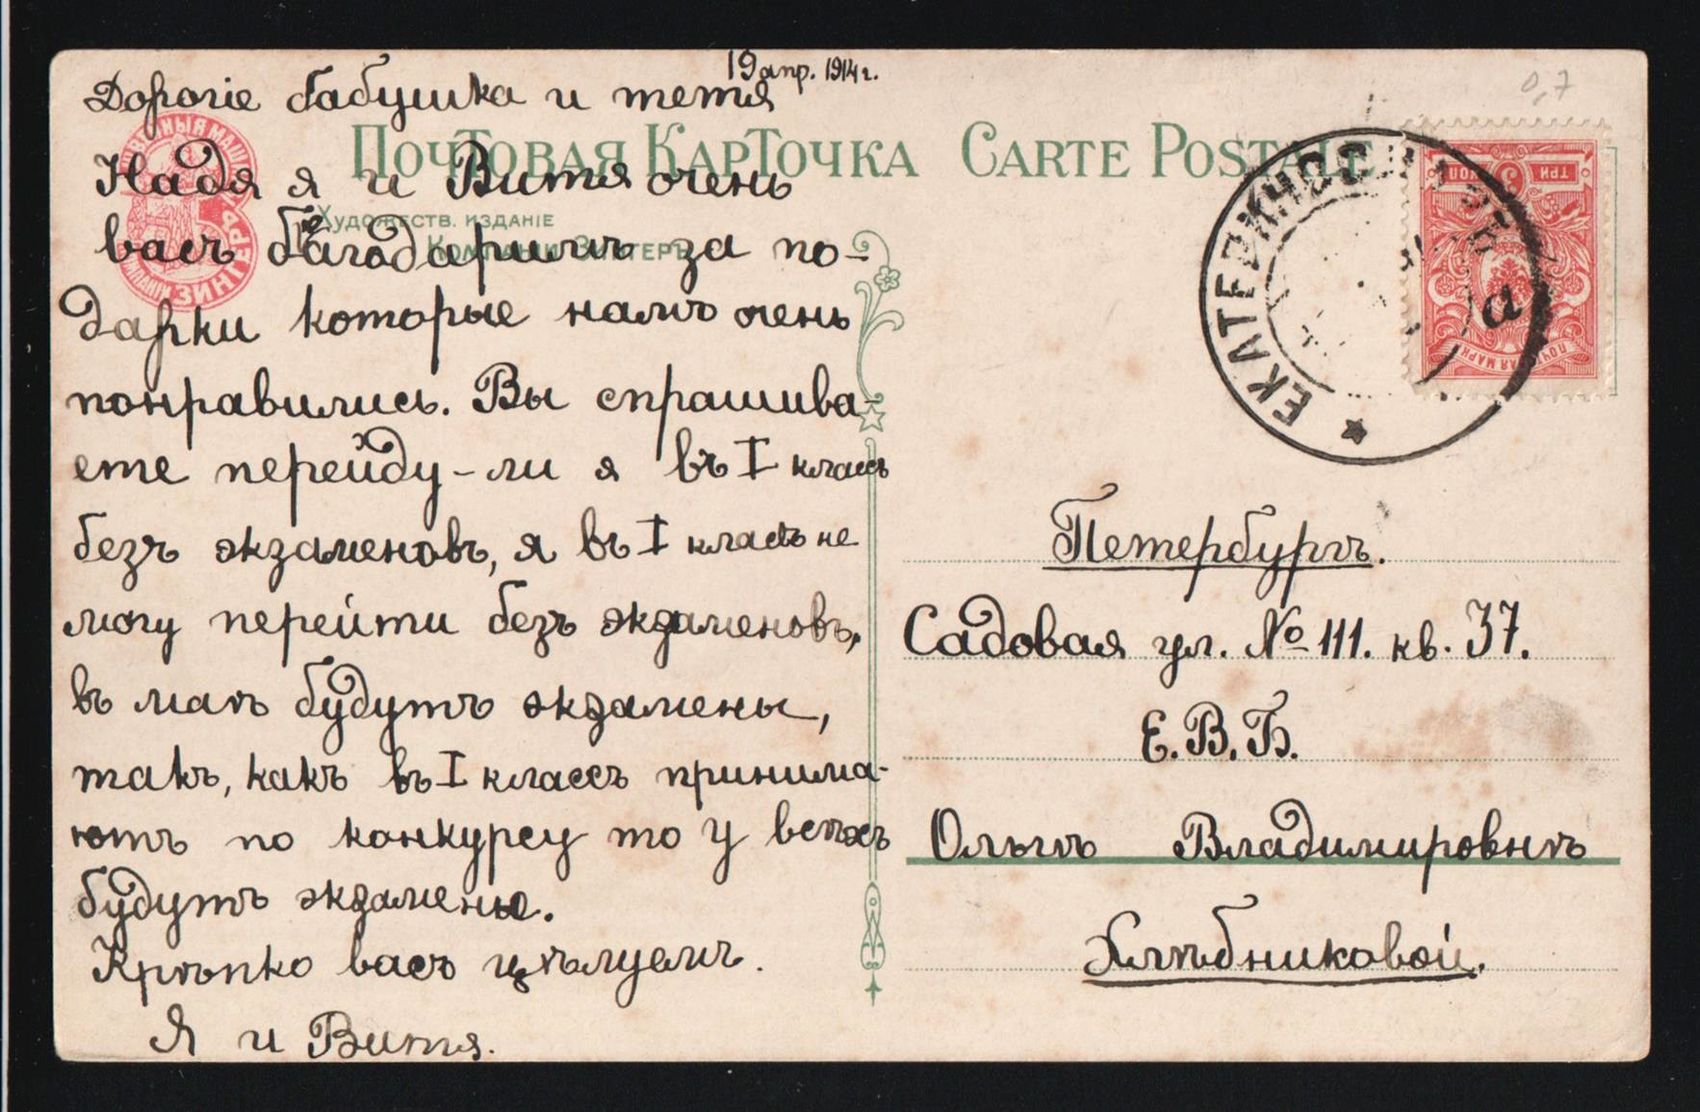 19 апр. 1914 г.
Дорогіе бабушка и тетя
Надя я и Витя очень
васъ благодаримъ за по-
дарки которые намъ очень
понравились. Вы спрашива-
ете перейду-ли я въ I классъ
безъ экзаменовъ, я въ I классъ не
могу перейти безъ экзаменовъ,
въ маѣ будутъ экзамены,
такъ, какъ въ I классъ принима-
ютъ по конкурсу то у всѣхъ
будутъ экзамены.
Крѣпко васъ цѣлуемъ.
Я и Витя.
ПОЧТОВАЯ КАРТОЧКА CARTE POSTALE
ХУДОЖЕСТВ. ИЗДАНІЕ
КОМПАНІИ ЗИНГЕРЪ
ЗИНГЕРЪ
0,7
ТРИ КОП
3
ПОЧТОВАЯ МАРКА
а
Петербургъ.
Садовая ул. № 111. кв. 37.
Е.В.Б.
Ольгѣ Владимировнѣ
Хлѣбниковой.